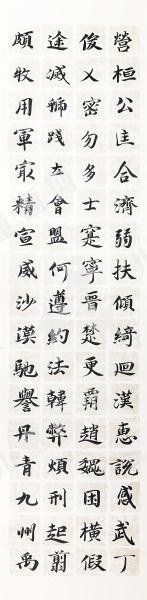 營桓公匡合濟弱扶傾綺迴漢惠說感武丁
俊乂密勿多士寔寧晉楚更霸趙魏困橫假
途滅虢踐土會盟何遵約法韓弊煩刑起翦
頗牧用軍㝡精宣威沙漠馳譽丹青九州禹